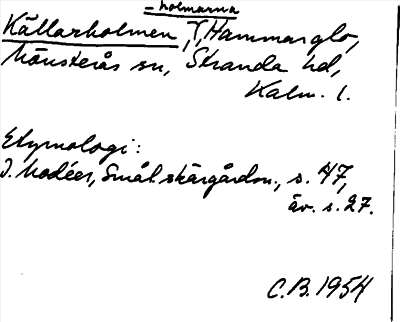 – holmarna
Källarholmen, T, Hammarglo,
Mönsterås sn, Stranda hd,
Kalm. l.
Etymologi:
I. Modéer, Smål. skärgårdsn., s. 47,
äv. s. 27.
C.B. 1954